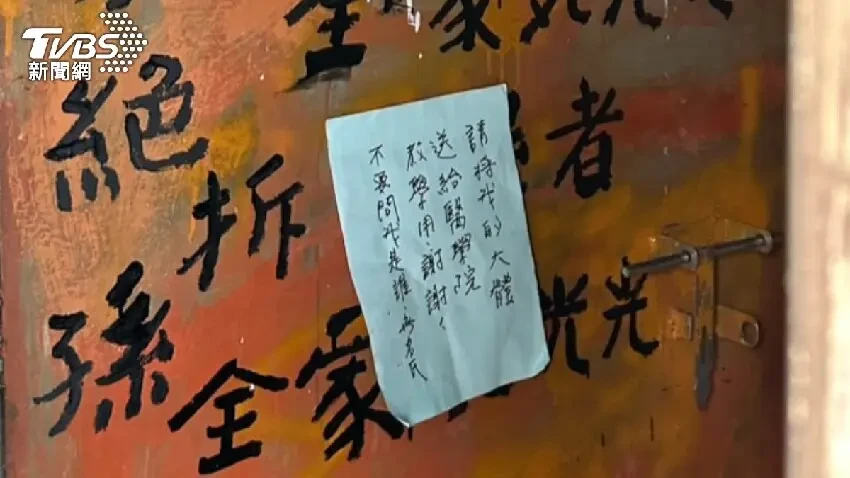 TVBS
新聞網
請將我的大體
送給醫學院
教學用,謝謝!
不要問我是誰.無名氏
者
拆
絕
孫
全家
光光